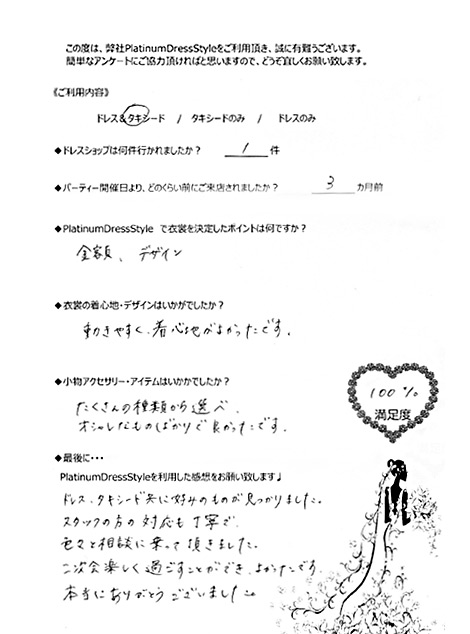 この度は、弊社PlatinumDressStyleをご利用頂き、誠に有難うございます。
簡単なアンケートにご協力頂ければと思いますので、どうぞ宜しくお願い致します。
《ご利用内容》
ドレス&タキシード / タキシードのみ / ドレスのみ
◆ドレスショップは何件行かれましたか? 1 件
◆パーティー開催日より、どのくらい前にご来店されましたか? 3 カ月前
◆PlatinumDressStyle で衣裳を決定したポイントは何ですか?
金額、デザイン
◆衣裳の着心地・デザインはいかがでしたか?
動きやすく、着心地がよかったです。
◆小物アクセサリー・アイテムはいかかでしたか?
たくさんの種類から選べ、
オシャレなものばかりで良かったです。
100%
満足度
◆最後に・・・
PlatinumDressStyleを利用した感想をお願い致します♩
ドレス、タキシード共に好みのものが見つかりました。
スタッフの方の対応も丁寧で、
色々と相談に乗って頂きました。
二次会楽しく過ごすことができ、よかったです。
本当にありがとうございました